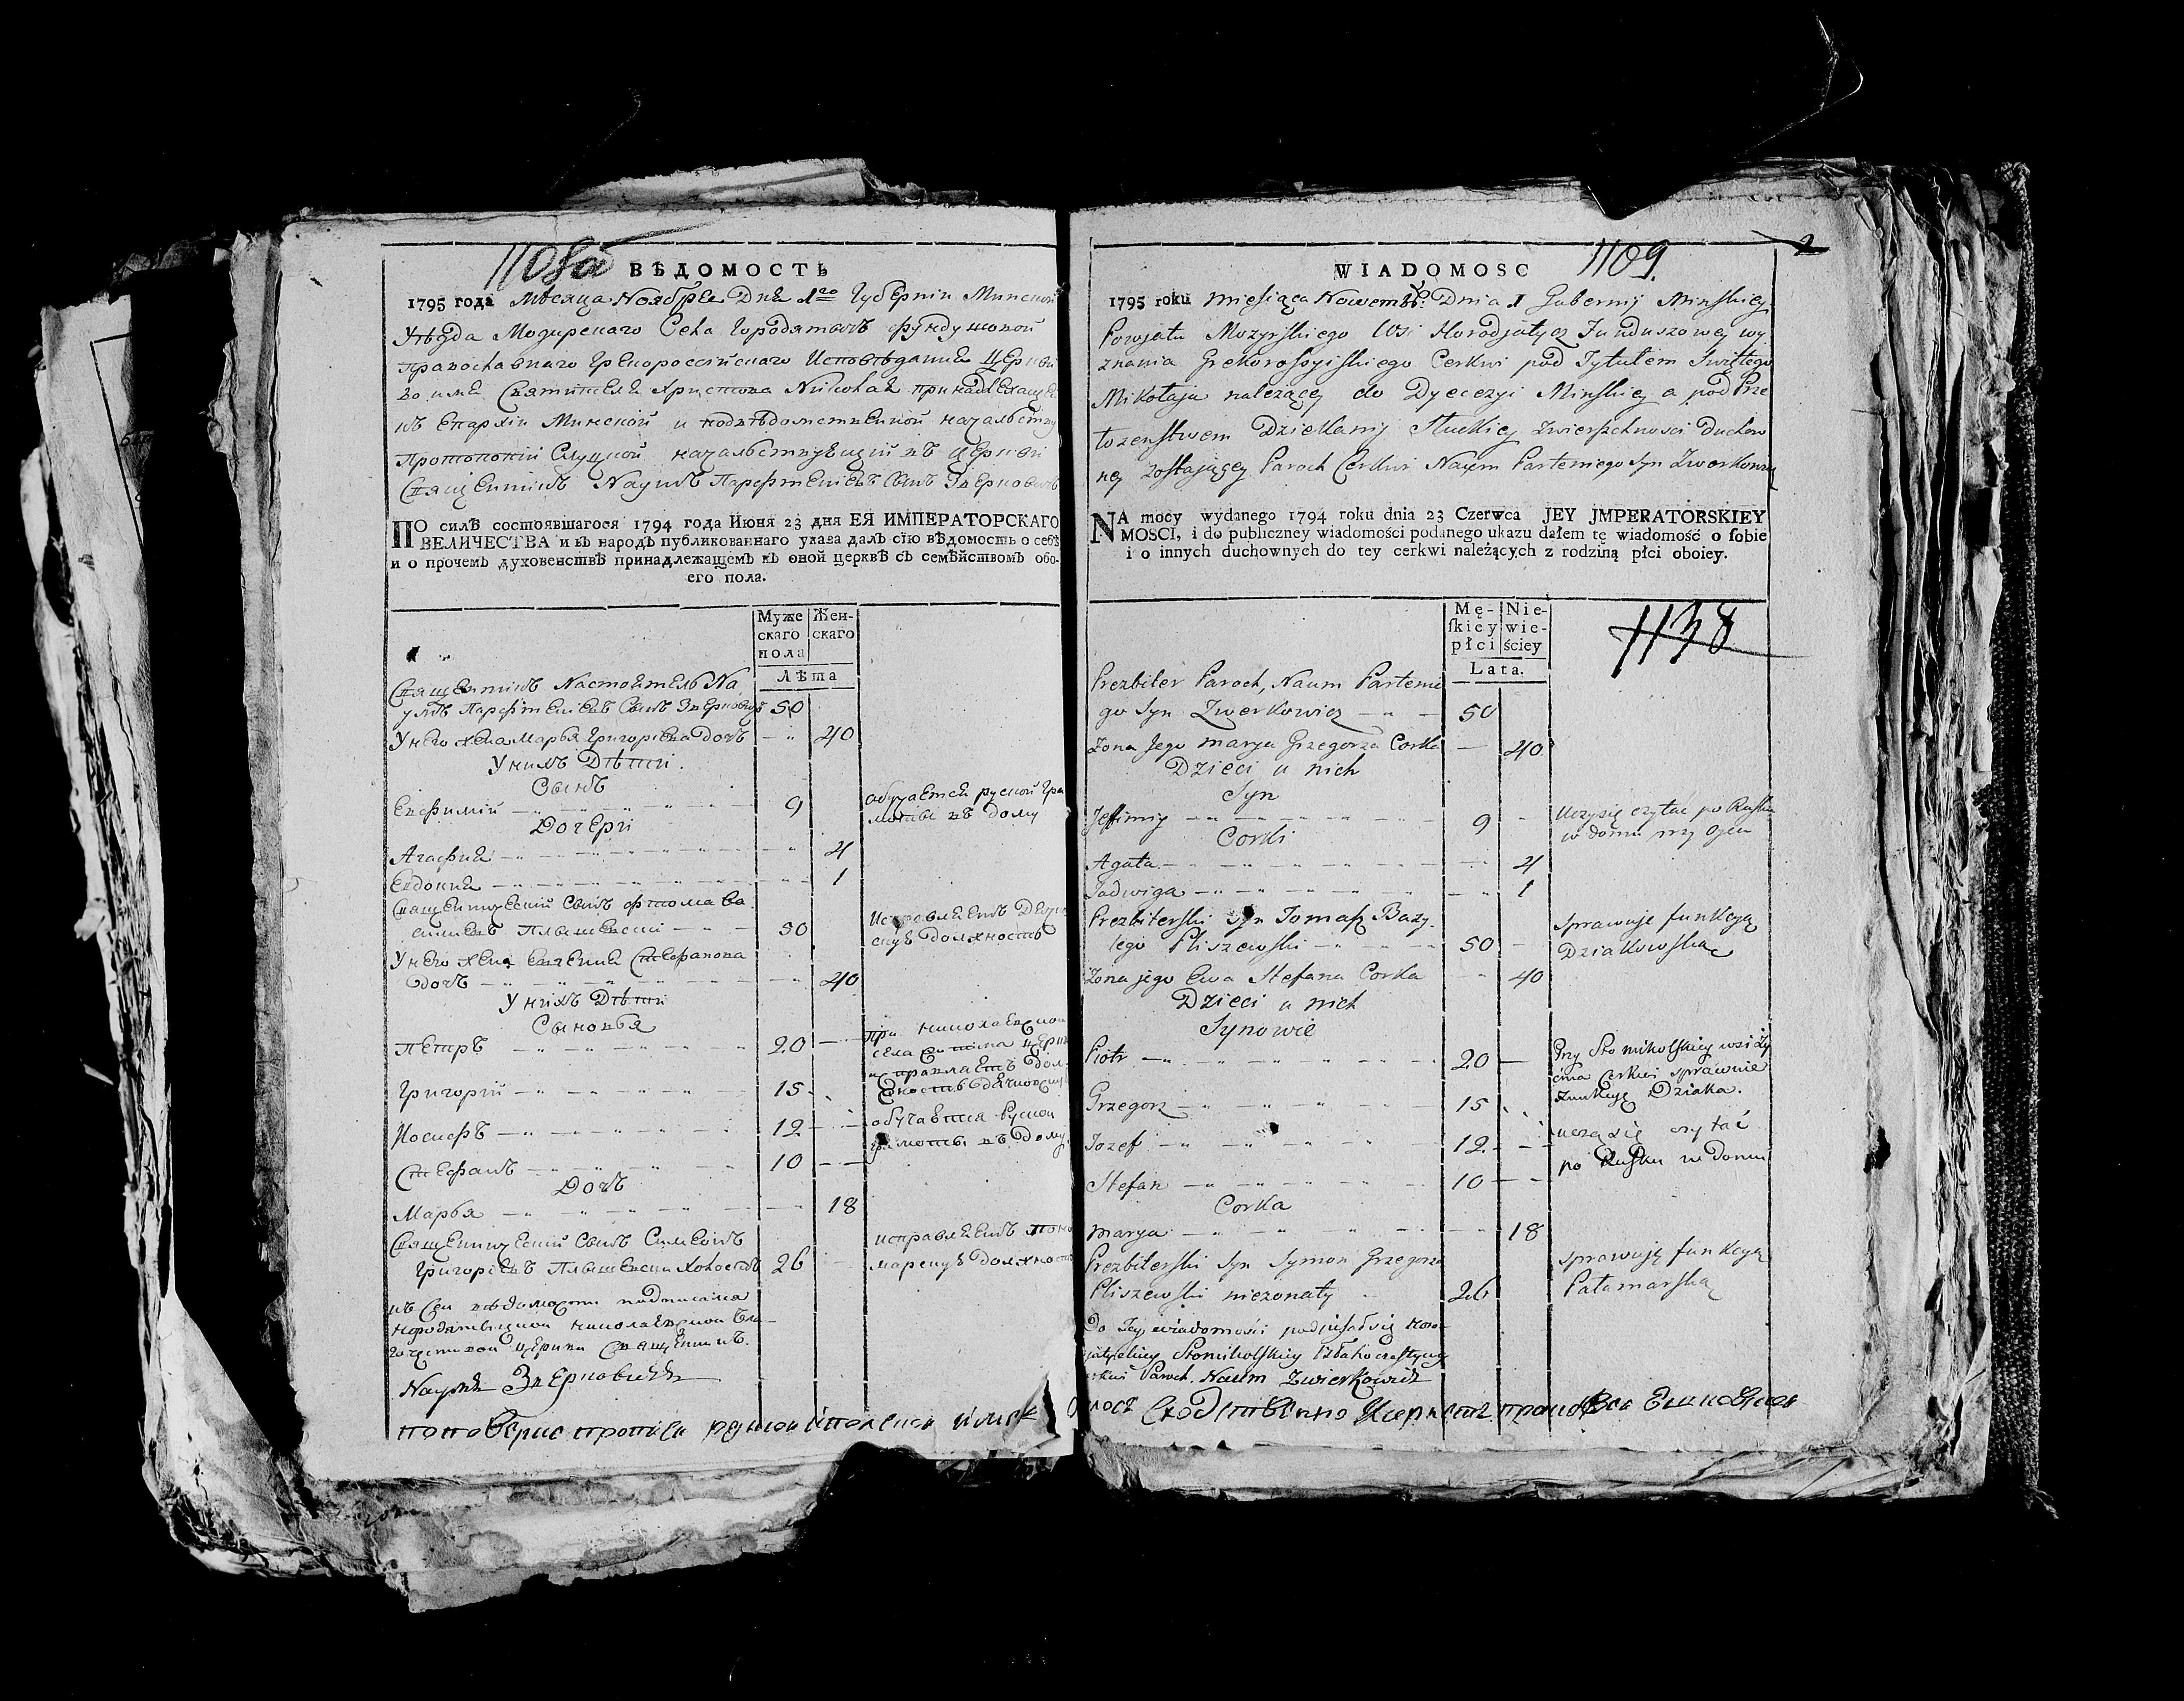 1108а
ВѢДОМОСТЬ
1795 года Мѣсяца Ноября Дня 1го Губернїи Минской
Уѣзда Мозирскаго Села Городятичъ фундушовой
православнаго Грекороссїйскаго Исповѣдания Церкви
во имя Святителя Христова Николая принадлежащей
къ Епархїи Минской и подвѣдомственной началству
Протопопїи Слуцкой началствующїй въ Церкви
Священникъ Наумъ Парфтенїевъ Сынъ Зверковичъ
ПО силѣ состоявшагося 1794 года Июня 23 дня ЕЯ ИМПЕРАТОРСКАГО
ВЕЛИЧЕСТВА и въ народъ публикованнаго указа далъ сїю вѣдомость о себѣ
и о прочемъ духовенствѣ принадлежащемъ къ оной церквѣ съ семѣйствомъ обо-
его пола.
Муже Жен-
скаго скаго
пола
Лѣта
Священникъ Настоятель На
умъ Парфтенїевъ Сынъ Зверковичъ 50
У него жена Марья Григорїева Дочь 40
У нихъ Дѣти.
Сынъ
Евфимїй 9 обучается руской гра
мотѣ въ дому
Дочери
Агафия 4
Евдокия 1
Священническїй Сынъ Фтома Ва
силиевъ Плышевски 50 Исправляетъ Дячко
скую должность
У него жена Евгения Стефанова
дочь 40
У нихъ Дѣти
Сыновья
Петръ 20 при николаевской
села церкви
исправляетъ дол
жность дячковскую
Григорїй 15
Иосифъ 12 обучаются Руской
грамоты въ дому
Стефанъ 10
Дочь
Марья 18
Священническїй Сынъ Симеонъ
Григорїевъ Плышевски Холостъ 26 исправляетъ поно
марскую должность
къ сей вѣдомости подписался
городятыцкой николаевской бла-
гочестивой церкви священникъ
Наумъ Зверковичъ
2
1109.
WIADOMOSC
1795 roku miesiąca Nowembr: Dnia 1 Gubernij Minskiey
Powjatu Mozyrskiego Wsi Horodjatycz Funduszowey wy
znania Grekorossyiskiego Cerkwi pod Tytułem Swiętego
Mikołaja należącey do Dyecezyi Minskiey a pod Prze
łozenstwem Dziekanij Słuckiey Zwierzchnosci Duchow
ney zostającey Paroch Cerkwi Naum Parteniego Syn Zwerkowicz
NA mocy wydanego 1794 roku dnia 23 Czerwca JEY JMPERATORSKIEY
MOSCI, i do publiczney wiadomości podanego ukazu dałem tę wiadomość o ſobie
i o innych duchownych do tey cerkwi należących z rodziną płci oboiey.
Mę- Nie-
ſkiey wie-
płci ściey
Lata.
1138
Prezbiter Paroch, Naum Partenie
go Syn Zwerkowicz 50
Zona Jego Marya Grzegorza Corka 40
Dzieci u nich
Syn
Jefimiy 9 Uczy się czytac po Rusku
w domu przy Oycu
Corki
Agata 4
Jadwiga 1
Prezbiterski Syn Tomasz Bazy-
lego Pliszewski 50 sprawuje funkcyą
Dziakowską
Zona jego Ewa Stefana Corka 40
Dzieci u nich
Synowie
Piotr 20 Przy Sto nikolskiey wsi
cerkwi sprawuie
funkcyę Dziaka.
Grzegorz 15
Jozef 12 uczą się czytać
po Rusku w domu
Stefan 10
Corka
Marya 18
Prezbiterski Syn Symon Grzegorza
Pliszewski niezonaty 26 sprawuję funkcyą
Pałamarską
Do Tey wiadomości podpisał się Horo-
Stonikolskiey
Paroch. Naum Zwierkowicz